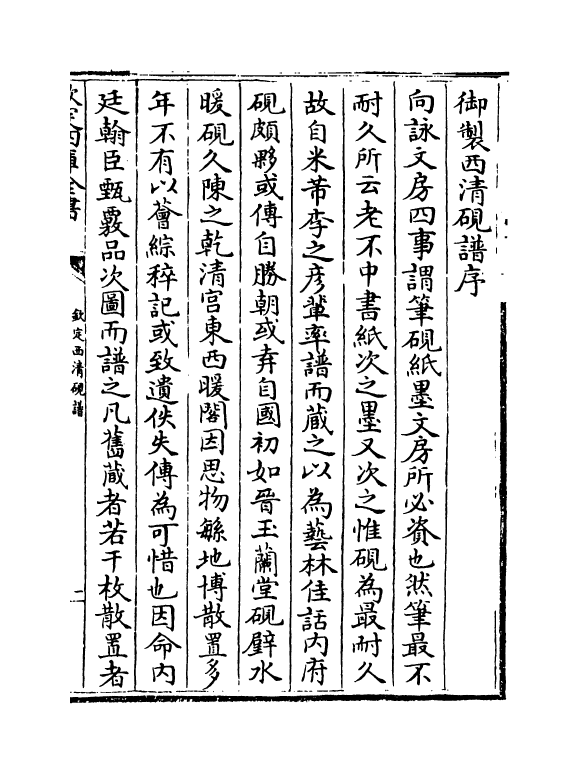 御製西清硯譜序
向詠文房四事謂筆硯紙墨文房所必資也然筆最不
耐久所云老不中書紙次之墨又次之惟硯為最耐久
故自米芾李之彥輩率譜而蔵之以為藝林佳話内府
硯頗夥或傳自勝朝或弆自國初如晉玉蘭堂硯璧水
暖硯久陳之乾清宫東西暖閣因思物緐地博散置多
年不有以薈綜粹記或致遺佚失傳為可惜也因命内
廷翰臣甄覈品次圖而譜之凡舊蔵者若干枚散置者
欽定四庫全書
欽定西清硯譜
二